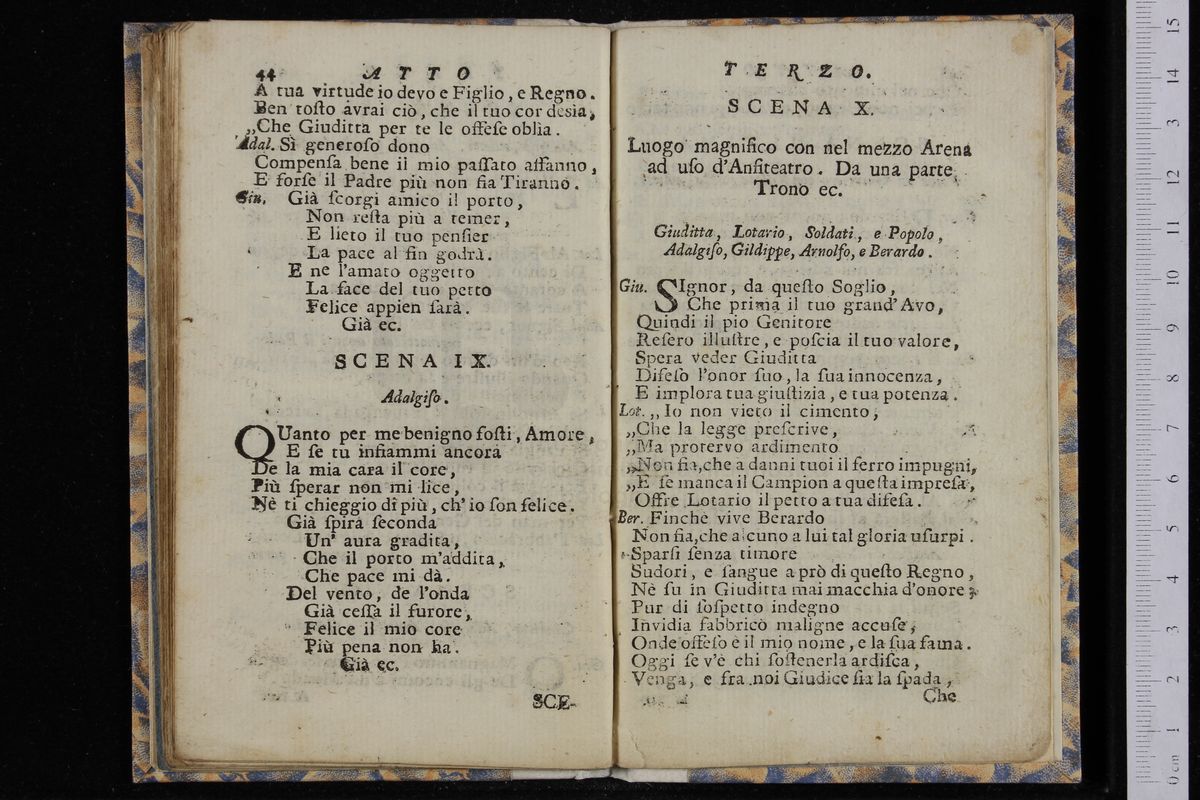 44 ATTO
A tua virtude io devo e Figlio, e Regno.
Ben toſto avrai ciò, che il tuo cor desia,
„Che Giuditta per te le offeſe oblìa.
Adal. Sì generoſo dono
Compenſa bene il mio paſſato affanno,
E forſe il Padre più non ſia Tiranno.
Giu. Già ſcorgi amico il porto,
Non reſta più a temer,
E lieto il tuo penſier
La pace al fin godrà.
E ne l'amato oggetto
La face del tuo petto
Felice appien ſarà.
Già ec.
SCENA IX.
Adalgiſo.
QUanto per me benigno foſti, Amore,
E ſe tu infiammi ancora
De la mia cara il core,
Più ſperar non mi lice,
Nè ti chieggio di più, ch'io ſon felice.
Già ſpira ſeconda
Un' aura gradita,
Che il porto m'addita,
Che pace mi dà.
Del vento, de l'onda
Già ceſſa il furore,
Felice il mio core
Più pena non ha.
Già ec.
SCE-
TERZO.
SCENA X.
Luogo magnifico con nel mezzo Arena
ad uſo d'Anfiteatro. Da una parte
Trono ec.
Giuditta, Lotario, Soldati, e Popolo,
Adalgiſo, Gildippe, Arnolfo, e Berardo.
Giu. SIgnor, da queſto Soglio,
Che prima il tuo grand' Avo,
Quindi il pio Genitore
Reſero illuſtre, e poſcia il tuo valore,
Spera veder Giuditta
Difeſo l'onor ſuo, la ſua innocenza,
E implora tua giuſtizia, e tua potenza.
Lot. „ Io non vieto il cimento,
„Che la legge preſcrive,
„Ma protervo ardimento
„Non fia, che a danni tuoi il ferro impugni,
„E ſe manca il Campion a queſta impreſa,
Offre Lotario il petto a tua difeſa.
Ber. Finchè vive Berardo
Non fia, che alcuno a lui tal gloria uſurpi.
Sparſi ſenza timore
Sudori, e ſangue a prò di queſto Regno,
Nè fu in Giuditta mai macchia d'onore;
Pur di ſoſpetto indegno
Invidia fabbricò maligne accuſe,
Onde offeſo è il mio nome, e la ſua fama.
Oggi ſe v'è chi ſoſtenerla ardiſca,
Venga, e fra noi Giudice ſia la ſpada,
Che
0 cm 1 2 3 4 5 6 7 8 9 10 11 12 3 14 15